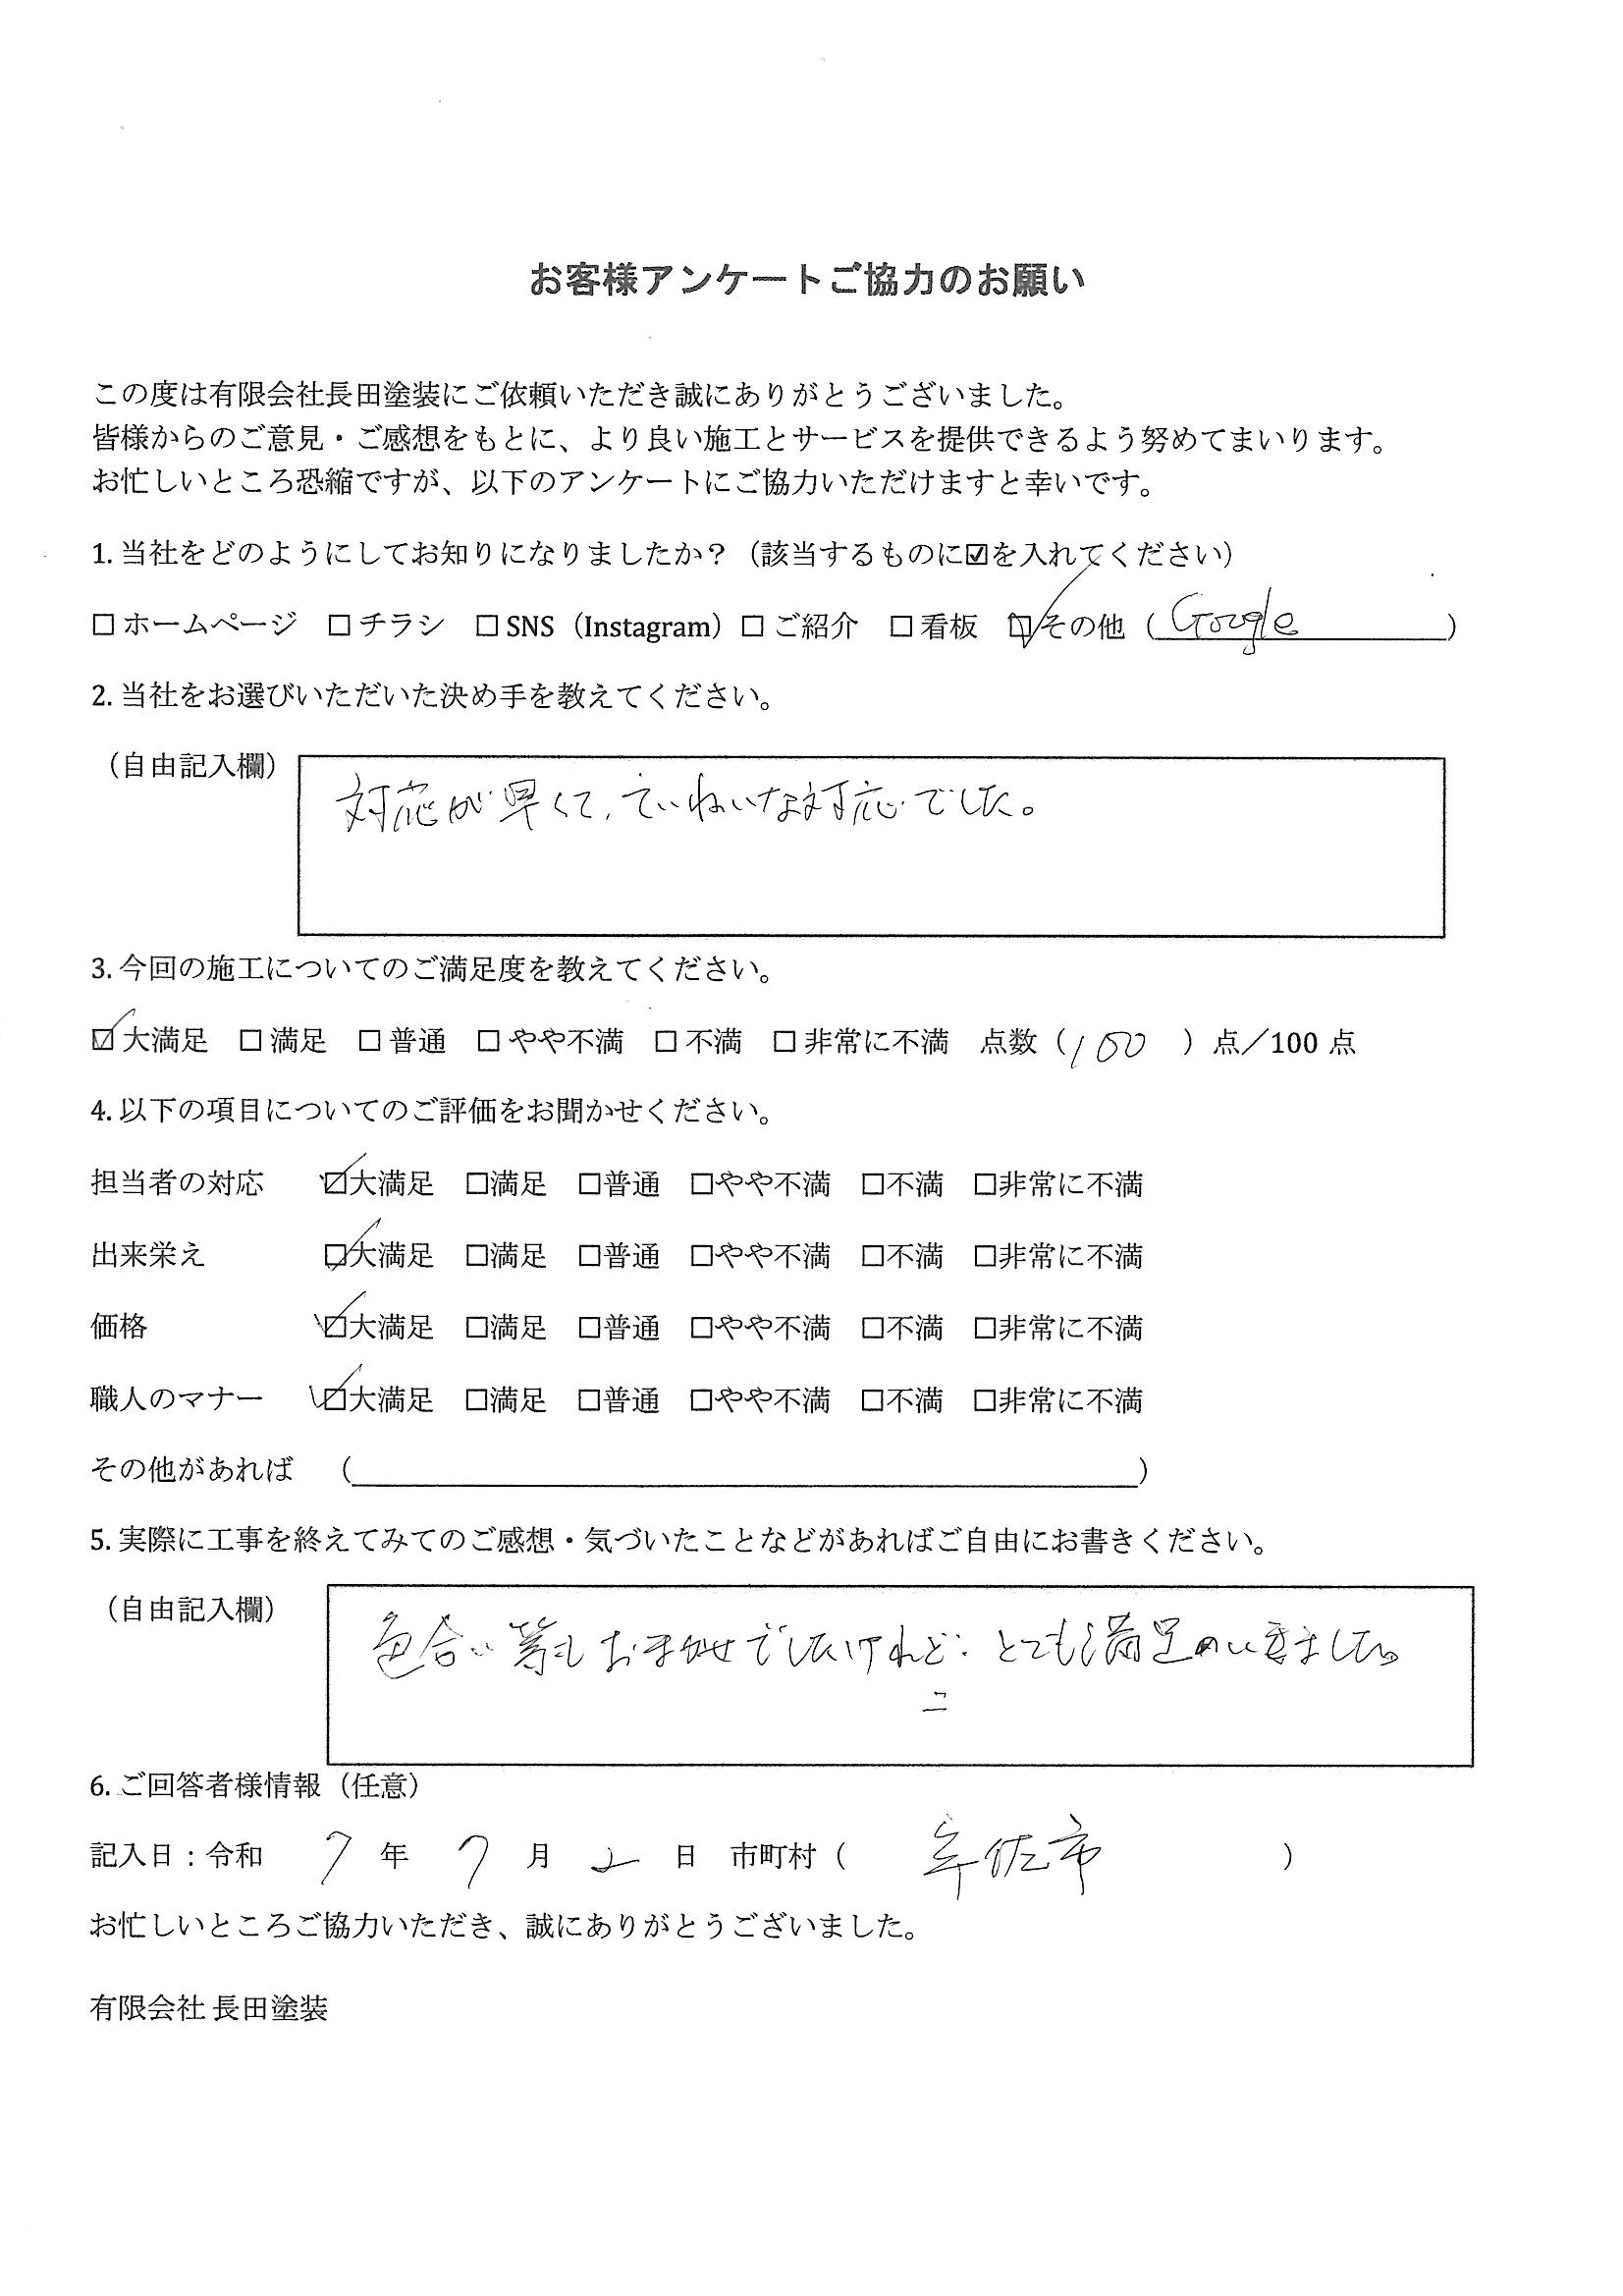 お客様アンケートご協力のお願い
この度は有限会社長田塗装にご依頼いただき誠にありがとうございました。
皆様からのご意見・ご感想をもとに、より良い施工とサービスを提供できるよう努めてまいります。
お忙しいところ恐縮ですが、以下のアンケートにご協力いただけますと幸いです。
1. 当社をどのようにしてお知りになりましたか？（該当するものに☑を入れてください）
☐ ホームページ ☐ チラシ ☐ SNS（Instagram）☐ ご紹介 ☐ 看板 ☑ その他（Google）
2. 当社をお選びいただいた決め手を教えてください。
（自由記入欄）
対応が早くて、ていねいな対応でした。
3. 今回の施工についてのご満足度を教えてください。
☑ 大満足 ☐ 満足 ☐ 普通 ☐ やや不満 ☐ 不満 ☐ 非常に不満 点数（100）点／100 点
4. 以下の項目についてのご評価をお聞かせください。
担当者の対応 ☑大満足 ☐満足 ☐普通 ☐やや不満 ☐不満 ☐非常に不満
出来栄え ☑大満足 ☐満足 ☐普通 ☐やや不満 ☐不満 ☐非常に不満
価格 ☑大満足 ☐満足 ☐普通 ☐やや不満 ☐不満 ☐非常に不満
職人のマナー ☑大満足 ☐満足 ☐普通 ☐やや不満 ☐不満 ☐非常に不満
その他があれば （ ）
5. 実際に工事を終えてみてのご感想・気づいたことなどがあればご自由にお書きください。
（自由記入欄）
色合い等もおまかせでしたけれど、とても満足のいきました。
6. ご回答者様情報（任意）
記入日：令和 7 年 7 月 2 日 市町村（ 宇佐市 ）
お忙しいところご協力いただき、誠にありがとうございました。
有限会社 長田塗装